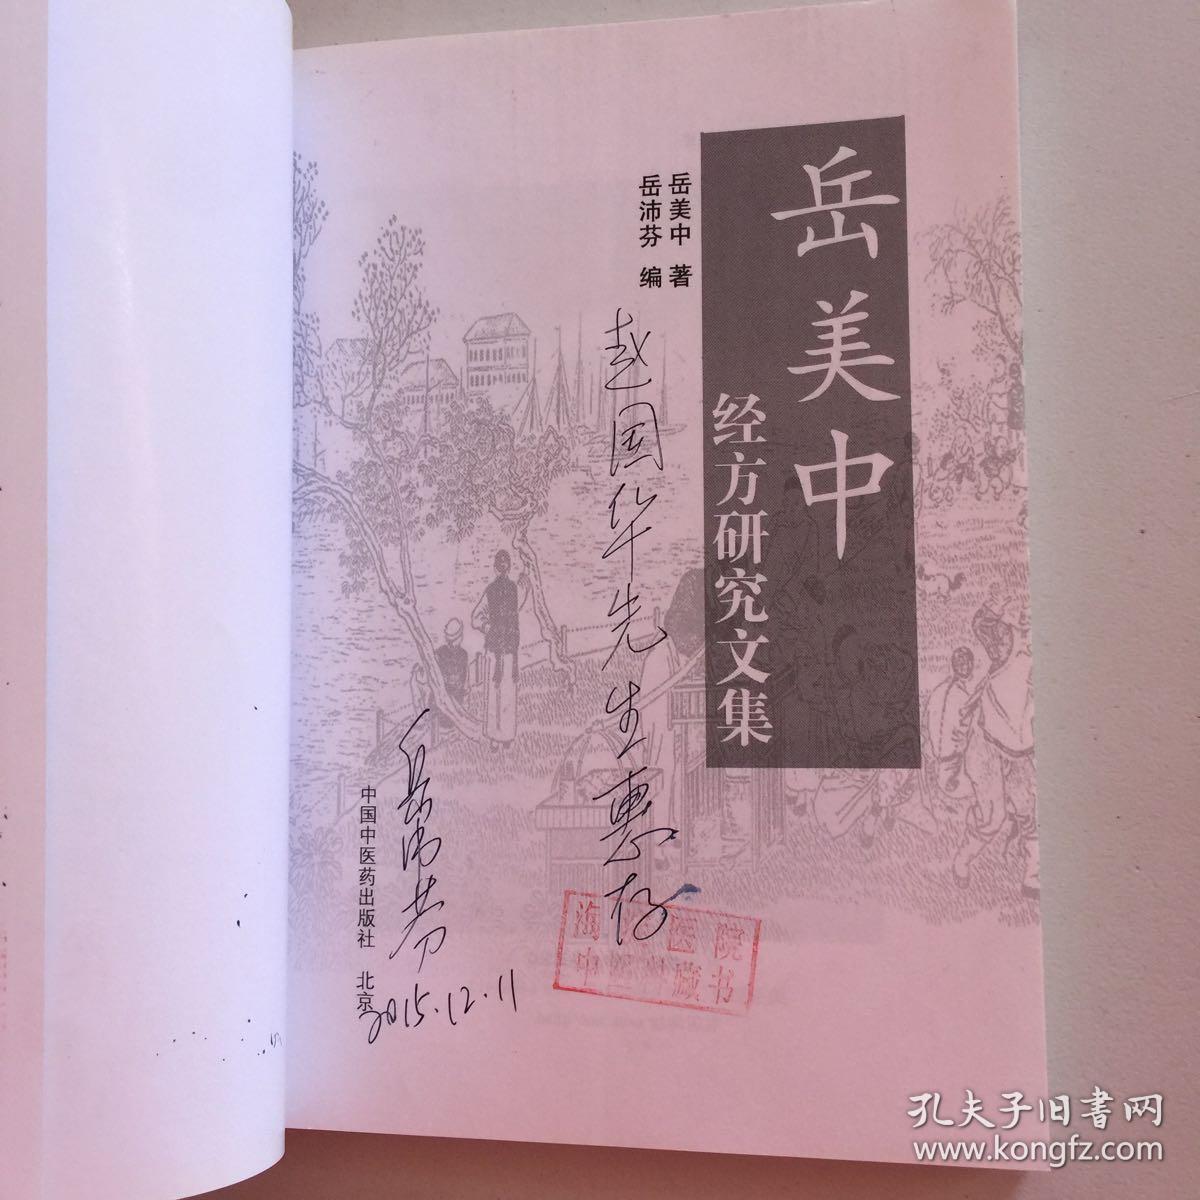 岳美中
经方研究文集
岳美中 著
岳沛芬 编
赵国华先生惠存
岳沛芬
2015.12.11
中国中医药出版社 北京
医院
中医科藏书
孔夫子旧书网
www.kongfz.com